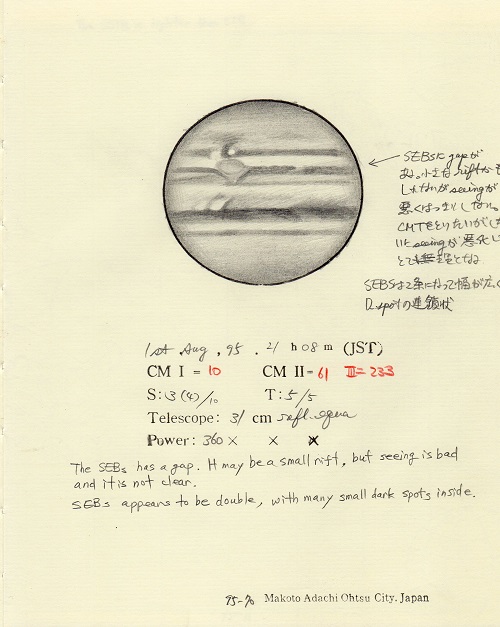 SEBsに gapが
ある。小さな riftかも
しれないが seeingが
悪くはっきりしない。
CMTをとりたいが
seeingが悪化し
SEBsは2条になって幅が広く
D. spotの連鎖状
1st Aug, 95. 21 h 08 m (JST)
CM I = 10 CM II = 61 III = 233
S: 3 (4)/10 T: 5/5
Telescope: 31 cm refl. equa
Power: 360 × × ×
The SEBs has a gap. It may be a small rift, but seeing is bad
and it is not clear.
SEBs appears to be double, with many small dark spots inside.
95-70 Makoto Adachi Ohtsu City. Japan